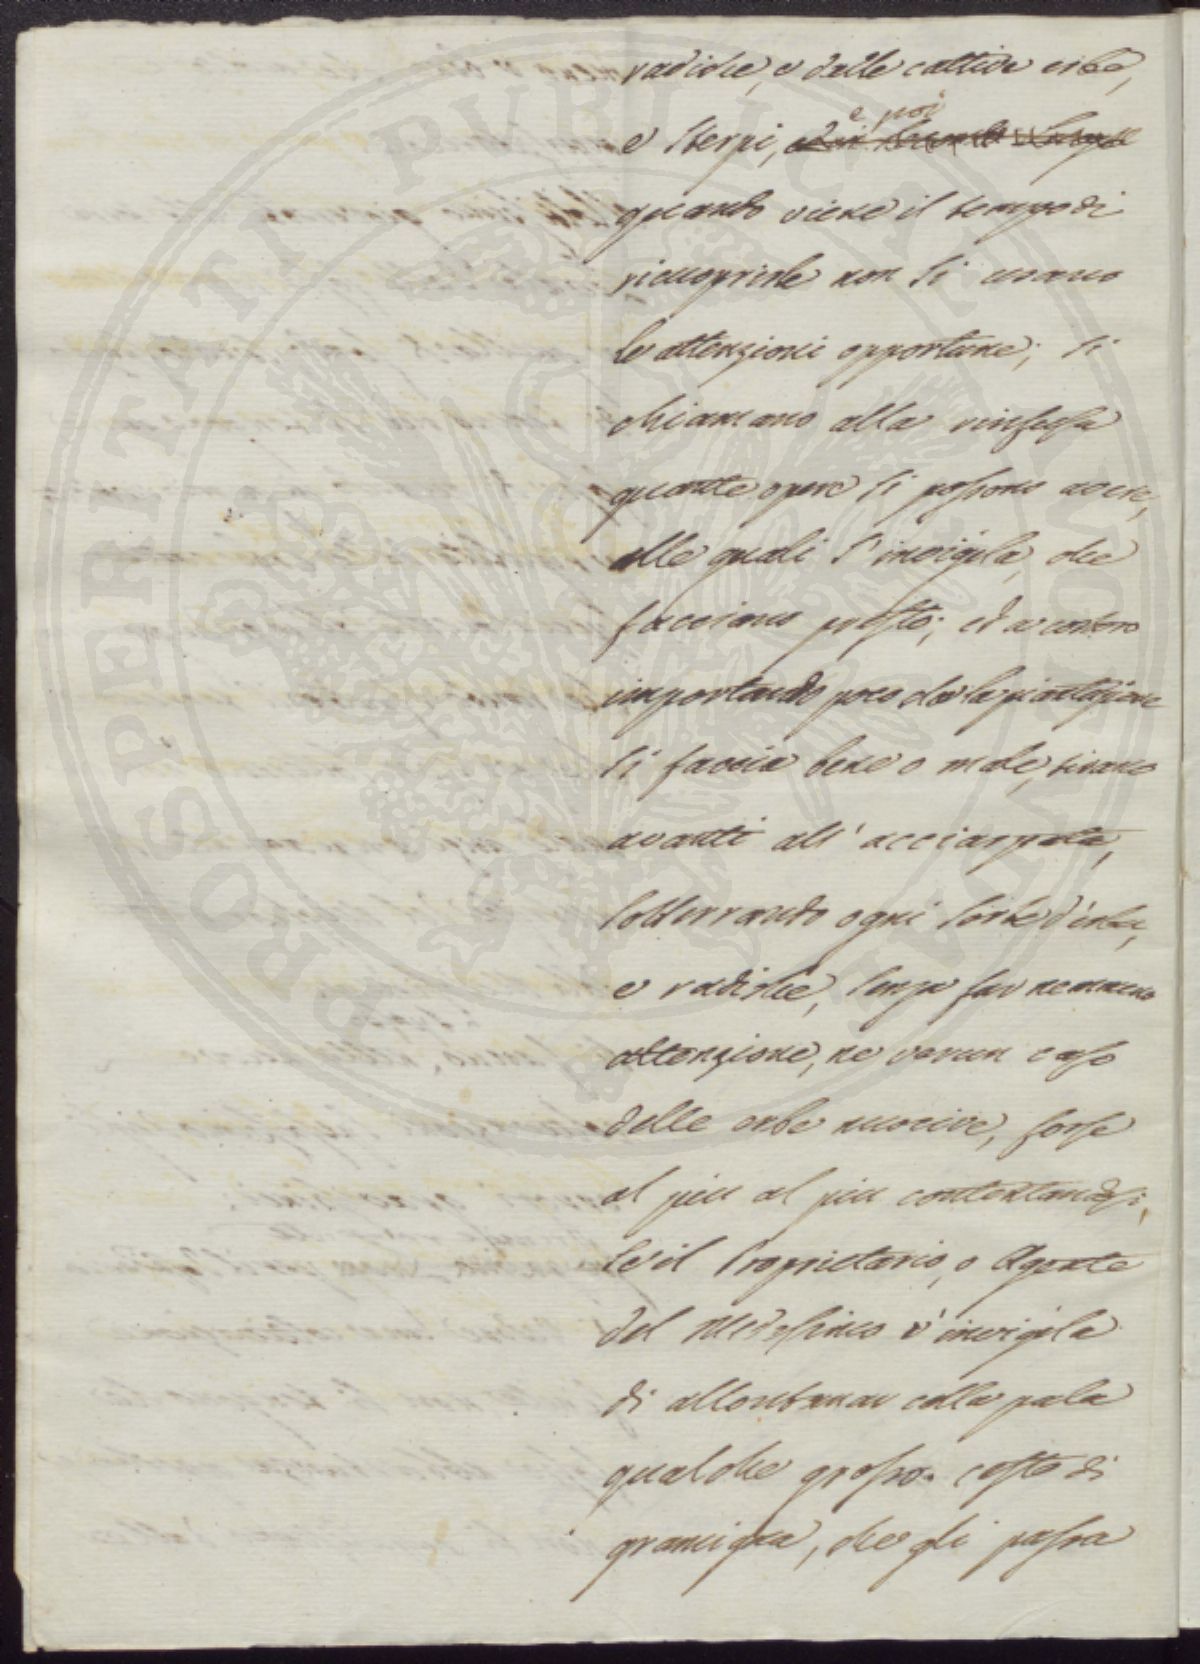 radiche, e dalle cattive erbe,
e poi
e sterpi,
quando viene il tempo di
ricuoprirle non si usano
le attenzioni opportune; si
chiamano alla rinfusa
quante opere si possono avere,
alle quali s'invigila, che
facciano presto; ed a costoro
importando poco che la piantazione
si faccia bene o male, tirano
avanti all'acciarpata,
sotterrando ogni sorte d'erbe,
e radiche, senza far nemmeno
attenzione, ne verun caso
delle erbe nuocive, forse
al piu al piu contentandosi,
se il Proprietario, o Agente
del medesimo v'invigila
di allontanar colla pala
qualche grosso cesto di
gramigna, che gli passa
PROSPERITATI PUBLICAE AUGENDAE